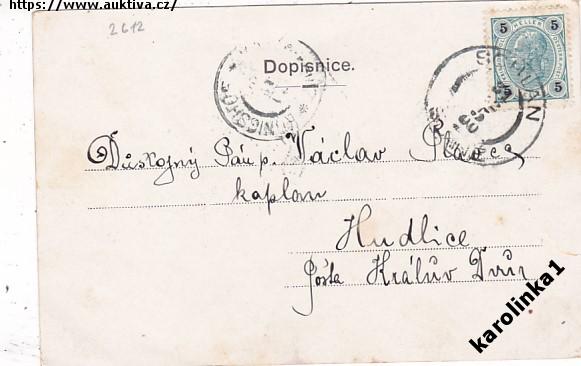 https://www.auktiva.cz/
2612
Dopisnice.
5 HELLER 5
5 5
KÖNIGSHOF
Důstojný Pán p. Václav
kaplan
Hudlice
pošta Králův Dvůr
karolinka1